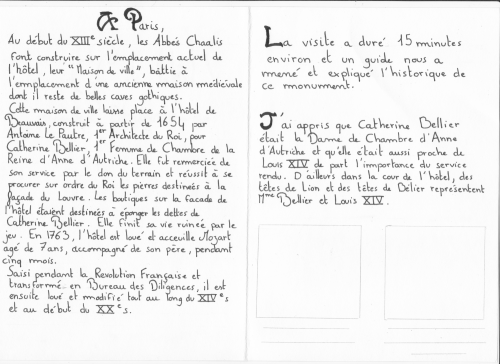 A Paris,
Au début du XIIIe siècle, les Abbés Chaalis
font construire sur l'emplacement actuel de
l'hôtel, leur "Maison de ville", battie à
l'emplacement d'une ancienne maison médiévale
dont il reste de belles caves gothiques.
Cette maison de ville laisse place à l'hôtel de
Beauvais, construit à partir de 1654 par
Antoine Le Pautre, 1er Architecte du Roi, pour
Catherine Bellier, 1er Femme de Chambre de la
Reine d'Anne d'Autriche. Elle fut remerciée de
son service par le don du terrain et réussit à se
procurer sur ordre du Roi les pierres destinées à la
façade du Louvre. Les boutiques sur la facade de
l'hôtel étaient destinées à éponger les dettes de
Catherine Bellier. Elle finit sa vie ruinée par le
jeu. En 1763, l'hôtel est loué et acceuille Mozart
agé de 7ans, accompagné de son père, pendant
cinq mois.
Saisi pendant la Revolution Française et
transformé en Bureau des Diligences, il est
ensuite loué et modifié tout au long du XIVes
et au début du XXes.
La visite a duré 15 minutes
environ et un guide nous a
mené et expliqué l'historique de
ce monument.
J'ai appris que Catherine Bellier
était la Dame de Chambre d'Anne
d'Autriche et qu'elle était aussi proche de
Louis XIV de part l'importance du service
rendu. D'ailleurs dans la cour de l'hôtel, des
têtes de Lion et des têtes de Bélier représentent
Mme Bellier et Louis XIV.